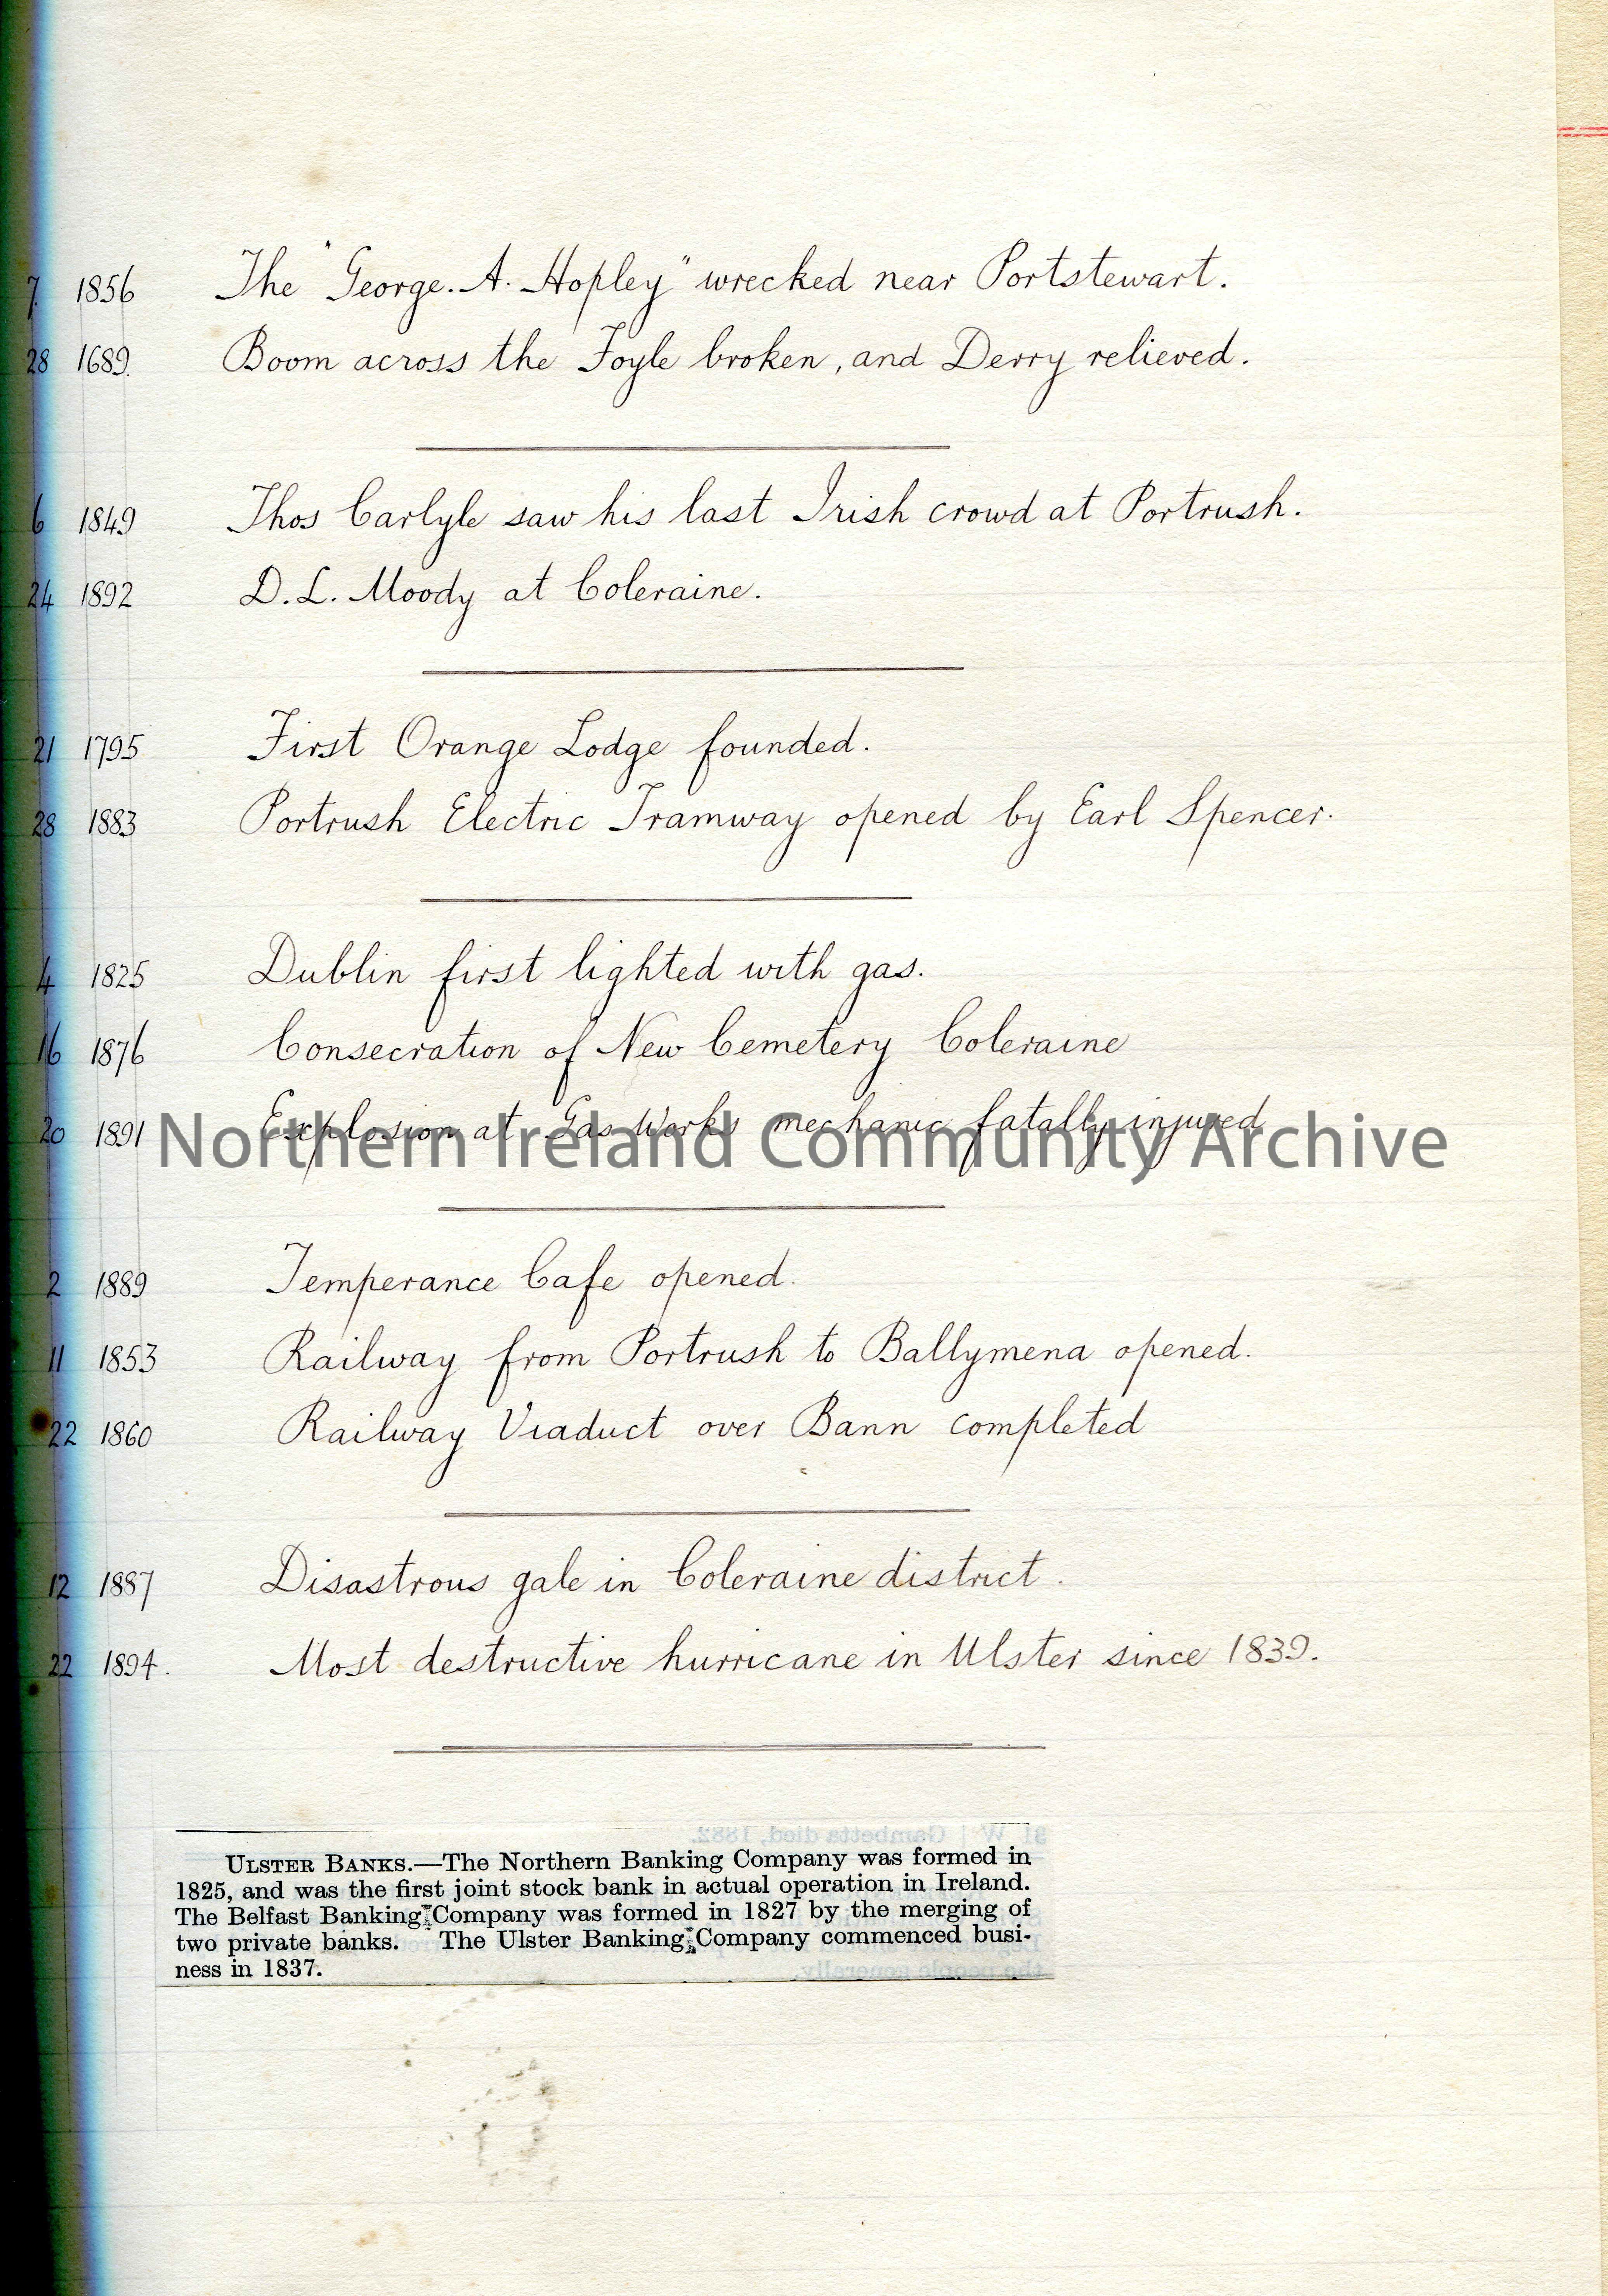 7 1856 The "George. A. Hopley" wrecked near Portstewart.
28 1689 Boom across the Foyle broken, and Derry relieved.
6 1849 Thos Carlyle saw his last Irish crowd at Portrush.
24 1892 D. L. Moody at Coleraine.
21 1795 First Orange Lodge founded.
28 1883 Portrush Electric Tramway opened by Earl Spencer.
4 1825 Dublin first lighted with gas.
16 1876 Consecration of New Cemetery Coleraine
20 1891 Explosion at Gas Works mechanic fatally injured
Northern Ireland Community Archive
2 1889 Temperance Cafe opened.
11 1853 Railway from Portrush to Ballymena opened.
22 1860 Railway Viaduct over Bann completed
12 1887 Disastrous gale in Coleraine district.
22 1894. Most destructive hurricane in Ulster since 1839.
31 W | Gambetta died, 1882.
ULSTER BANKS.—The Northern Banking Company was formed in
1825, and was the first joint stock bank in actual operation in Ireland.
The Belfast Banking Company was formed in 1827 by the merging of
two private banks. The Ulster Banking Company commenced busi-
ness in 1837.
the people generally.